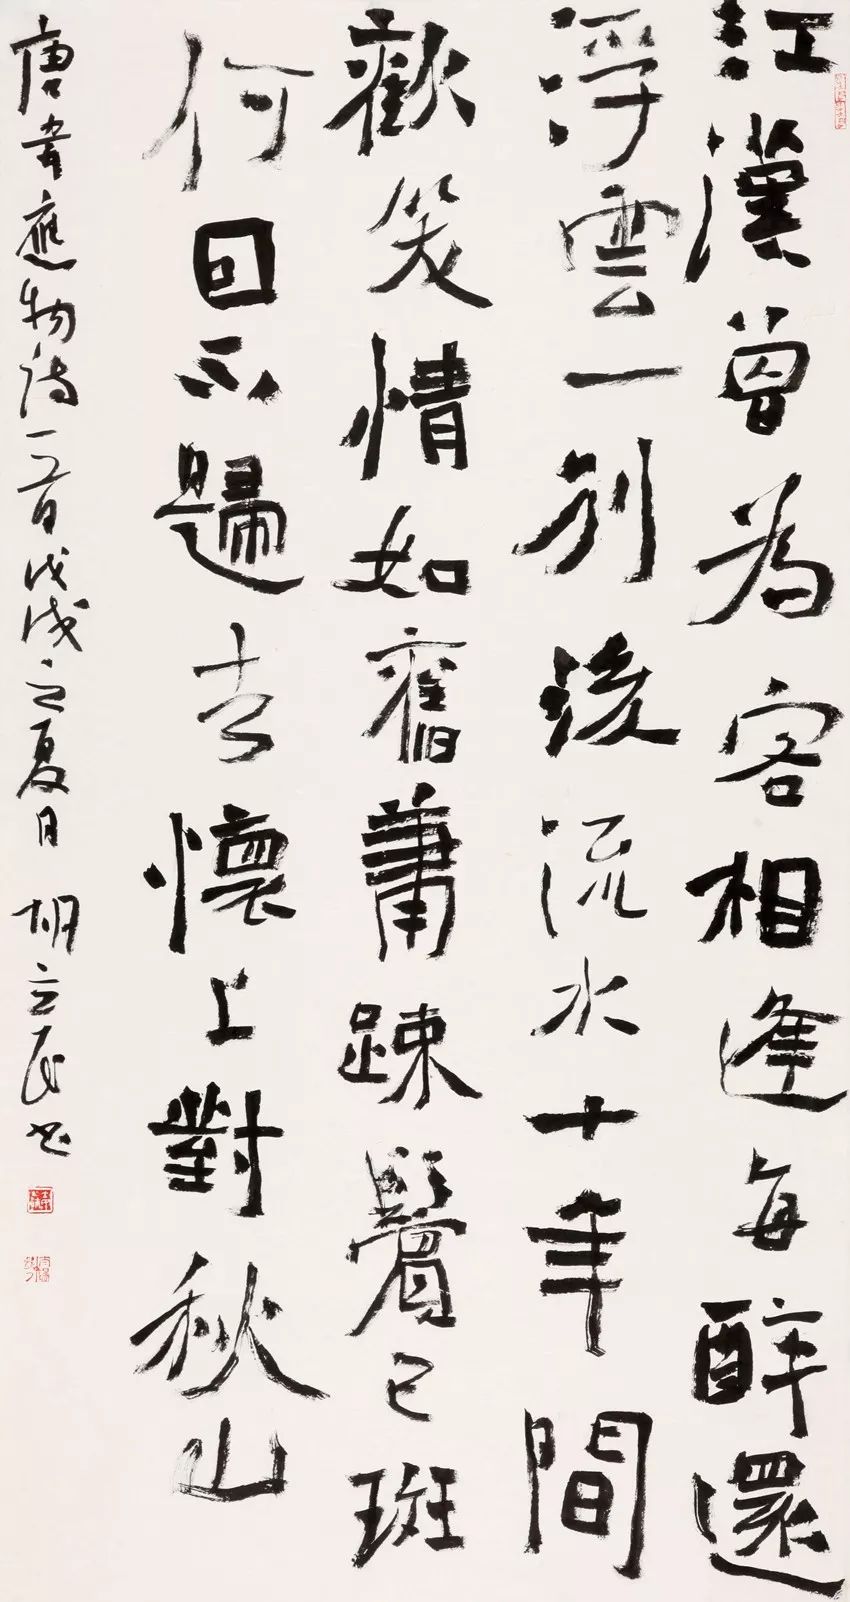 江漢曾為客相逢每醉還
浮雲一別後流水十年間
歡笑情如舊蕭踈鬢已斑
何囙不歸去懷上對秋山
唐韋應物詩一首戊戌立夏日 胡立民書